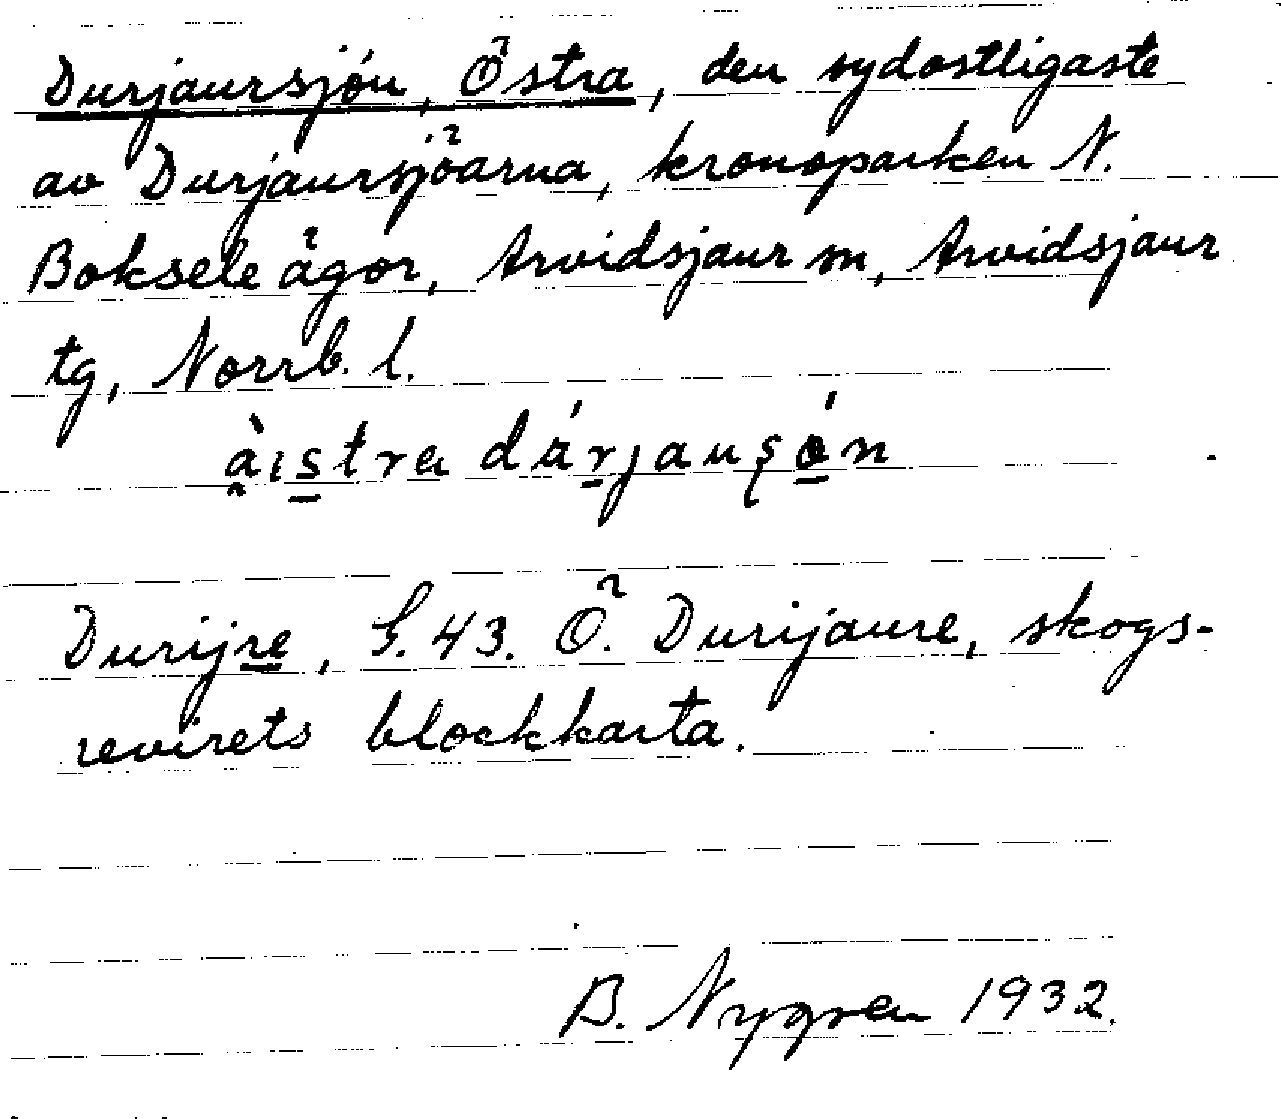 Durjaursjön, Östra, den sydostligaste
av Durjaursjöarna, kronoparken N.
Boksele ägor, Arvidsjaur sn, Arvidsjaur
tg, Norrb. l.
Durijre, G. 43. Ö. Durijaure, skogs-
revirets blockkarta.
B. Nygren 1932.